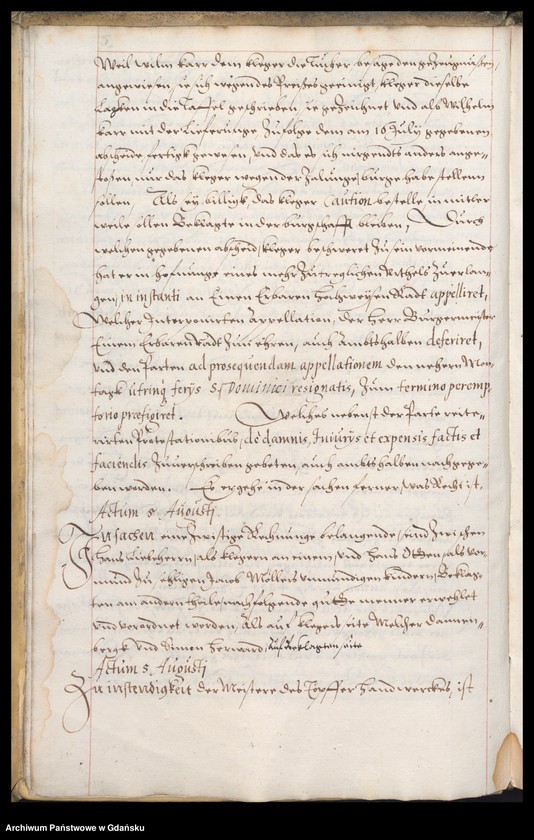 Weil Wilm Karr dem kleger die Tücher, besage den gezeugnüssen,
angewiesen, sie sich wegen des Preißes geeinigt, kleger dieselbe
Lacken in die Taffel geschrieben, sie gezeichnet und als Wilhelm
Karr mit der Lieferunge zu folge dem am 16 July gegebenen
abscheide fertigk gewesen, und das es sich nirgendts anders ange-
stossen, nur das kleger wegen der Zalunge bürge habe stellenn
sollen, Als ey billick, das kleger Caution bestelle, in mitler
weile sollen Beklagte in der bürgschafft bleiben, Durch
welchen gegebenen abscheid, kleger beschwert zu sein vermeinende
hat er in hofnunge eines mehr zutreglichen Urthels zuerlan-
gen, in instanti an Einen Erbaren Hochweysen Radt appelliret,
Welcher Interponirten Appellation, der Herr Bürgermeister
Einem Erbaren Radt zun ehren, auch Ambtshalben deferiret,
und den Parten ad prosequendam appellationem den nehern Mon-
tagk utrinq ferijs S. Dominici resignatis, zum termino peremp
torio præfigiret. Welches nebenst der Parte reite-
rirten Protestationibus, de damnis, Iniurijs et expensis factis et
faciendis zuverschreiben gebeten, auch ambtshalben nachgege-
ben worden. Es ergehe in der sachen ferner, was Recht ist,
Actum 5. Augusti
In sachen eine zwistige Rechnunge belangende, sind zwischen
Hans als klegern an einem, und Hans als vor-
mund zu, ehligen Jacob Möllers unmündigen kindern, Beklag-
ten am andern theile, nachfolgende gutte menner erwehlet
und verordnet worden, als auf klegers seite Melcher Dannen-
bergk und Simon auf beklagten seite
Actum 5. Augusti
Zu instendigkeit der Meistere des Töpffer Handwerckes, ist
Archiwum Państwowe w Gdańsku